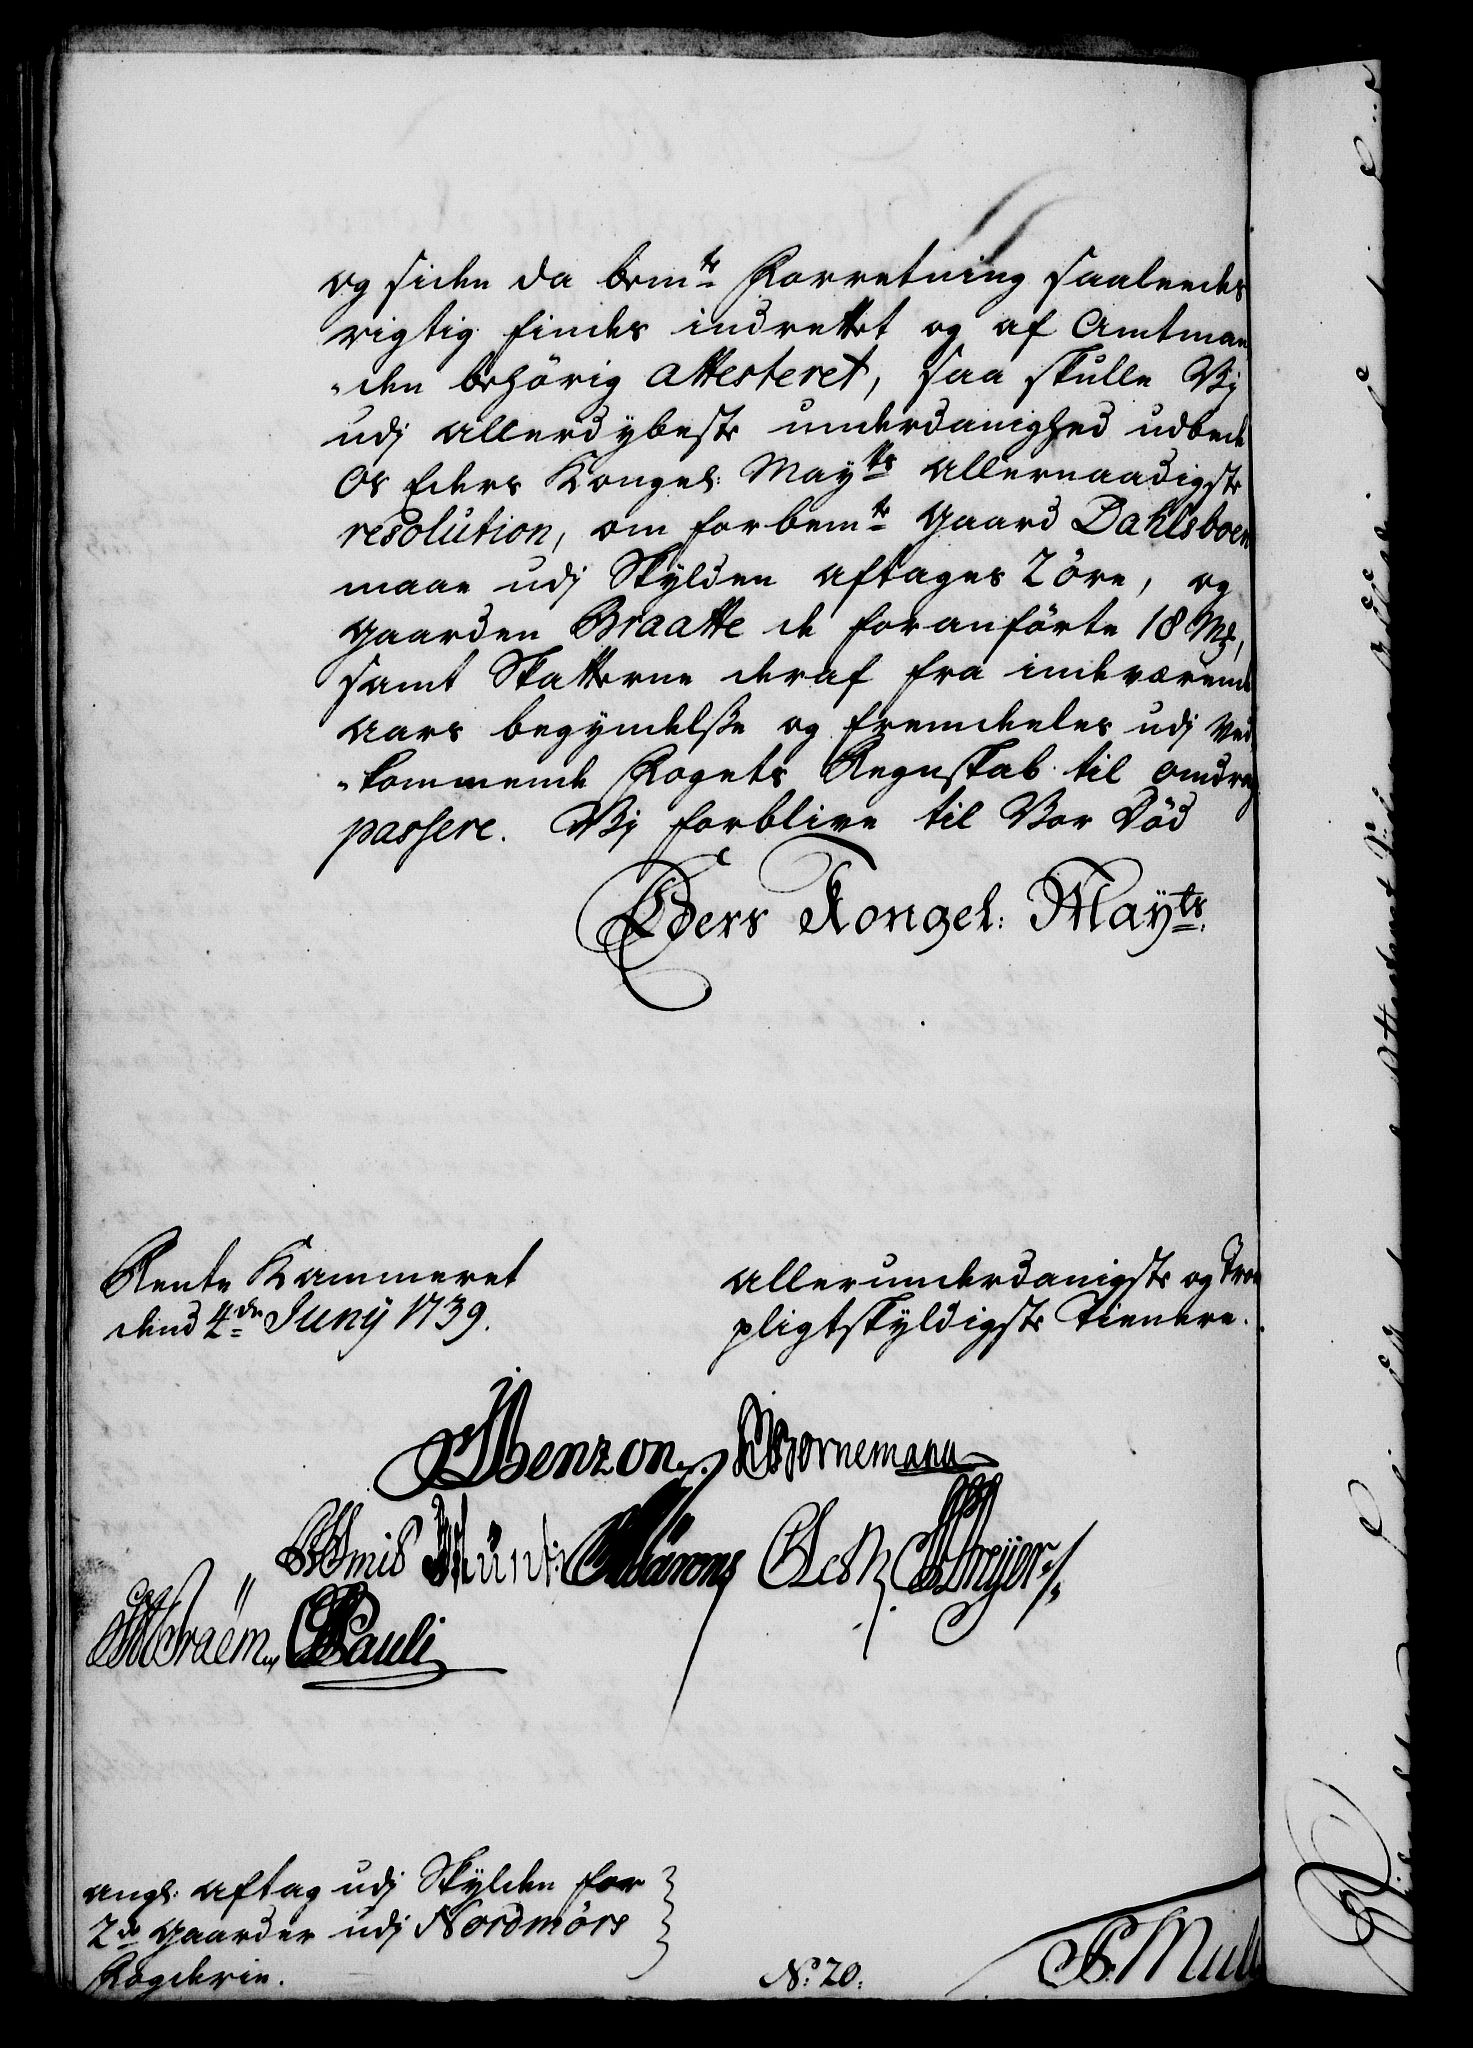 og siden da bem.te Forretning saaleedes
rigtig findes indrettet og af Amtman
"den behörig attesteret, saa skulle Vj
udj allerdybeste underdanighed udbede
Os Eders Kongel: May.ts allernaadigste
resolution, om forbem.te Gaard Dahlsboen
maae udj Skylden aftages 2 öre, og
Gaarden Braatte de foranförte 18 Mk,
samt Skatterne deraf fra indeværende
Aars begyndelsse og fremdeeles udj Ved
"kommende Fogets Regnskab til omdrag
passere. Vj forblive til Vor Död
Eders Kongel: May.ts
Rente Kammeret
dend 4.de Juny 1739.
allerunderdanigste og Troe
pligtskyldigste Tienere.
Benzon
Bornemann
Pauli
angl: aftag udj Skylden for
2.de Gaarder udj Nordmörs
Fogderie.
N.o 20.